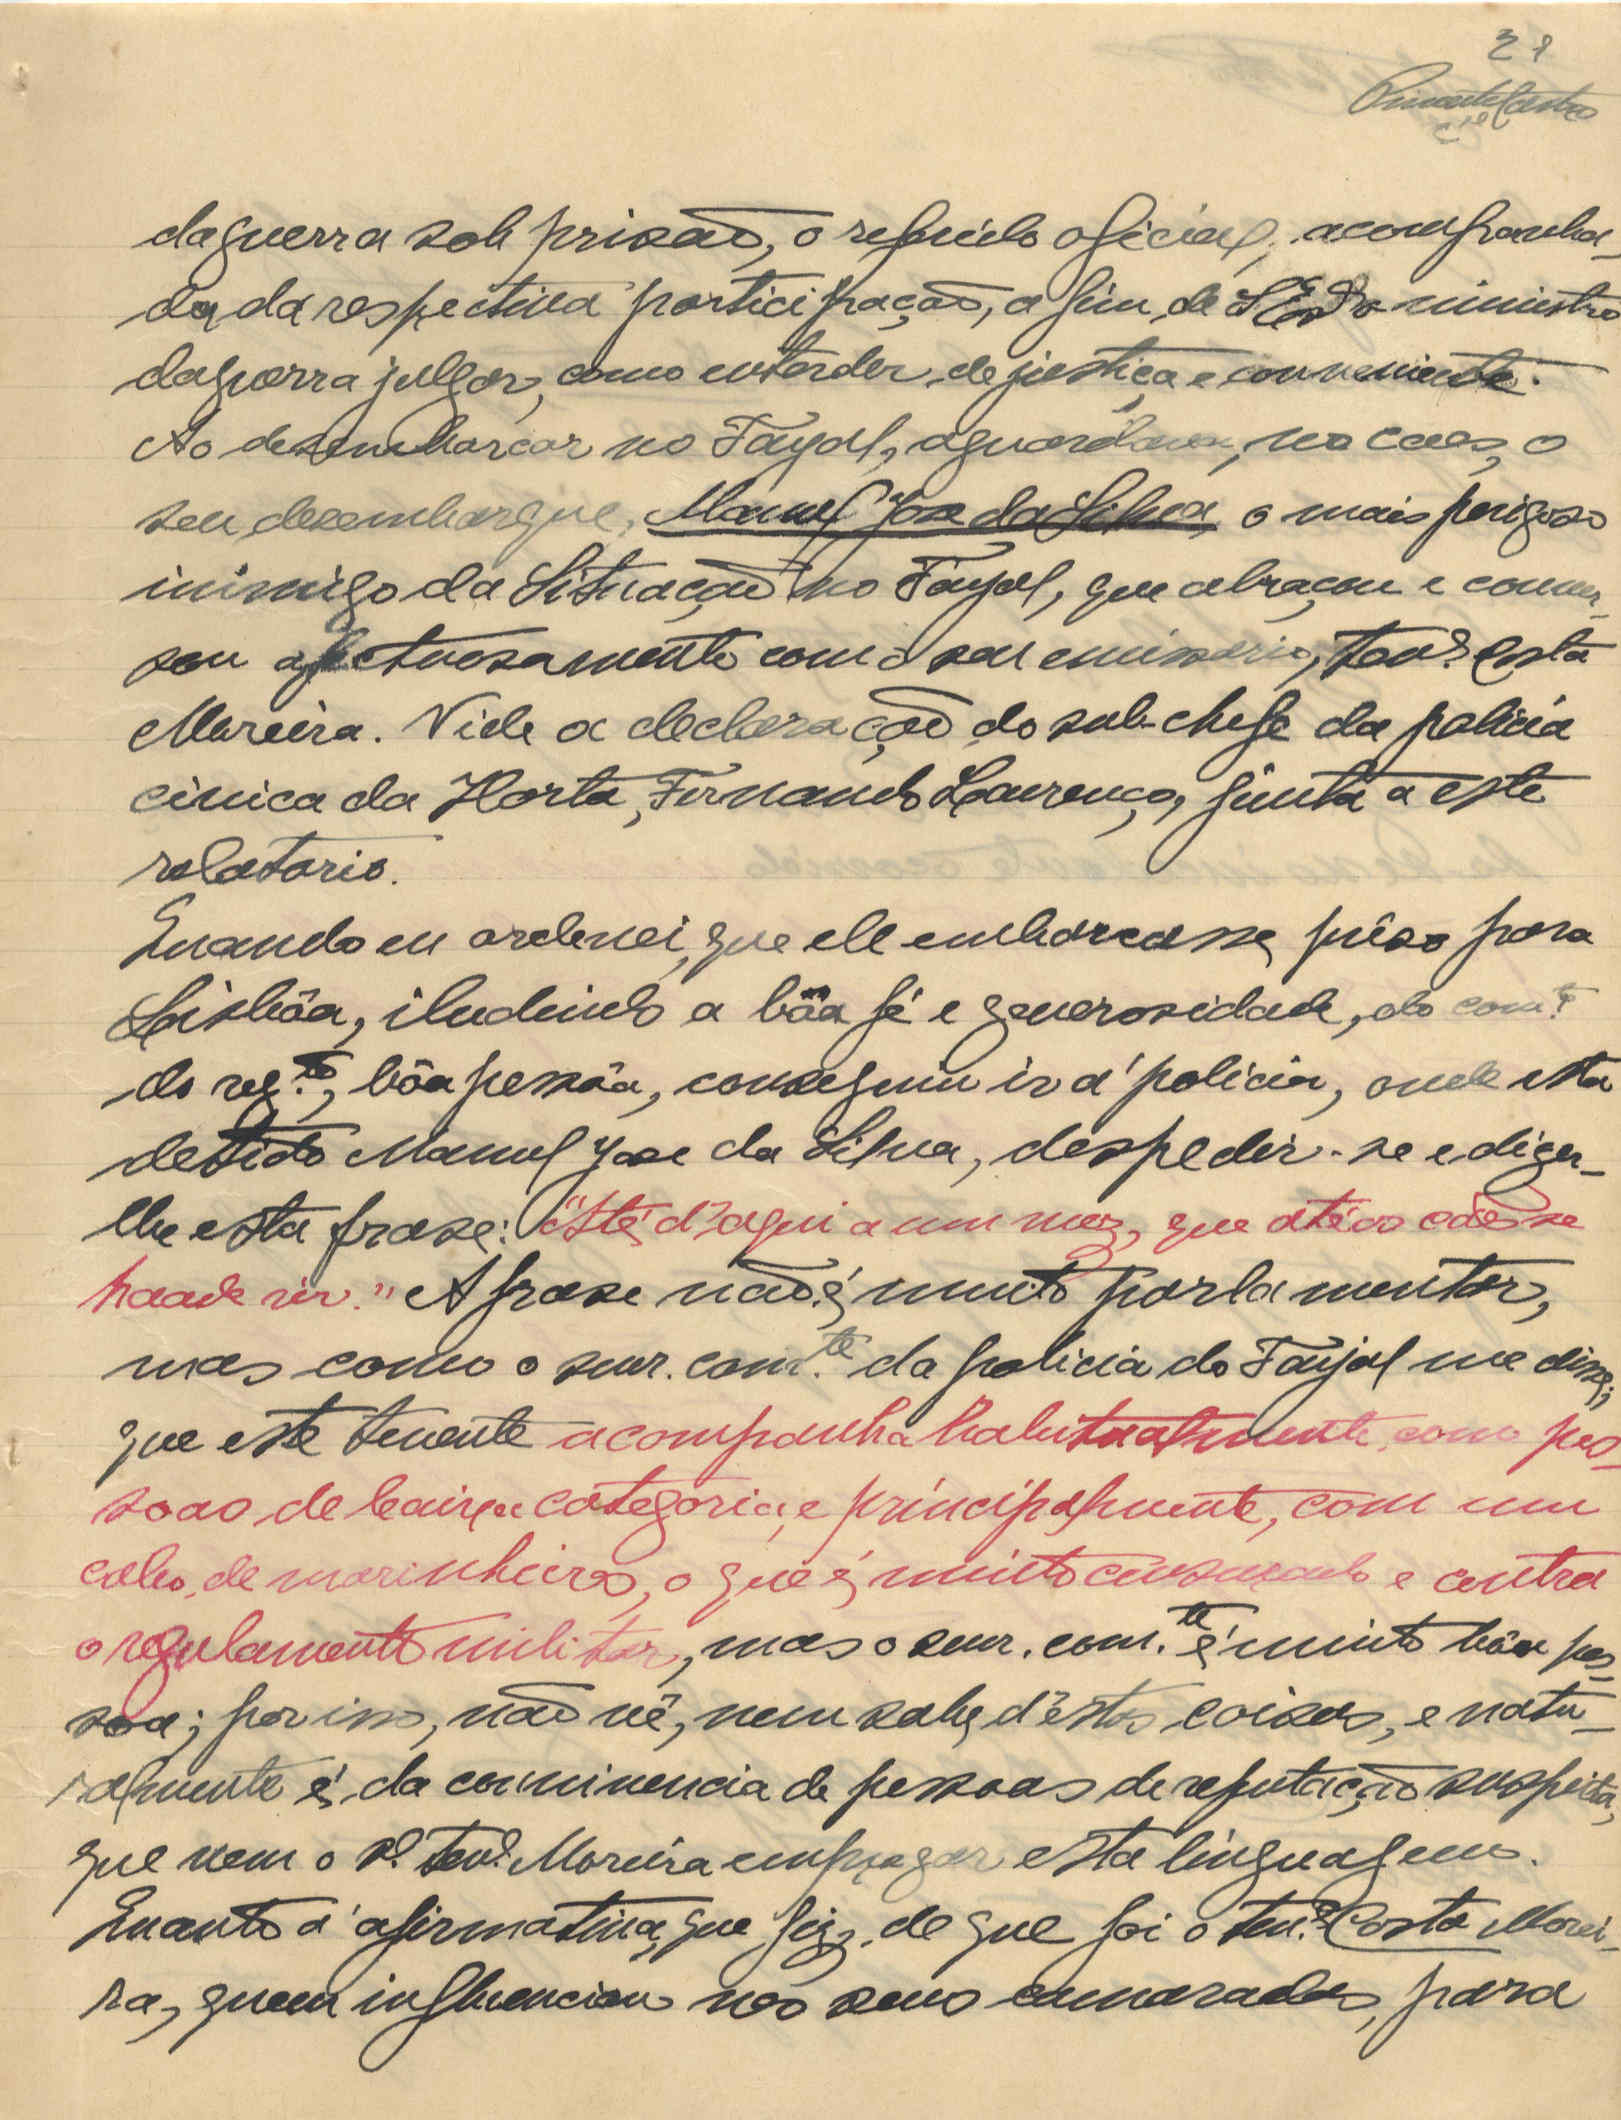 21
Pimentel Castro
da guerra sob prisão, o refrido oficial, acompanha-
da da respectiva participação, a fim de S. Exª o ministro
da guerra julgar, como entender de justiça e conveniente.
Ao desembarcar no Fayal, aguardava, no caes, o
seu desembarque, Manuel Jose da Silva, o mais perigoso
inimigo da Situação no Fayal, que abraçou e conver-
sou afectuosamente com o seu emissario, tenᵉ Costa
Moreira. Vide a declaração do sub-chefe da policia
civica da Horta, Fernando Lourenço, junta a este
relatorio.
Quando eu ordenei, que ele embarcasse prêso para
Lisbôa, iludindo a bôa fé e generosidade, do comᵗᵉ
do regᵗᵒ, bôa pessôa, conseguiu ir á policia, onde esta
detido Manuel Jose da Silva, despedir-se e dizer-
lhe esta frase: "Até d'aqui a um mez, que até os cães se
haade vir." A frase não é muito parlamentar,
mas como o snr. comᵗᵉ da policia do Fayal me disse,
que este tenente acompanha habitualmente com pes-
soas de baixa categoria, e principalmente, com um
cabo de marinheiros, o que é muito censurado e contra
o regulamento militar, mas o snr. com.ᵗᵉ é muito bôa pes-
soa; por isso, não vê, nem sabe d'éstas coisas, e natu-
ralmente é da convivencia de pessoas de reputação suspeita,
que vem o sʳ tenᵉ Moreira empregar esta linguagem.
Quanto á afirmativa, que fiz, de que foi o tenᵉ Costa Morei-
ra, quem influenciou nos seus camaradas, para